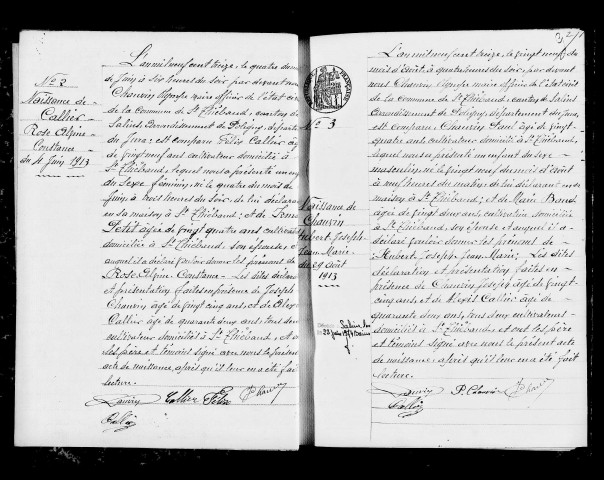 N° 2
Naissance de
Callier
Rose Alpine
Constance
du 4 Juin 1913
L'an mil neuf cent treize, le quatre du mois
de Juin à six heures du soir, par devant nous
Chauvin maire officier de l'état civil
de la Commune de St Thiébaud, canton de
Salins, Arrondissement de Poligny, département
du Jura: est comparu Félix Callier âgé
de vingt neuf ans cultivateur domicilié à
St Thiébaud, lequel nous a présenté un enfant
du Sexe féminin, né le quatre du mois de
Juin, à trois heures du soir, de lui déclarant
en sa maison à St Thiébaud, et de
Petit âgée de vingt quatre ans cultivatrice
domiciliée à St Thiébaud, son épouse, et
auquel il a déclaré vouloir donner les prénoms de
Rose Alpine Constance - Les dites déclaration
et présentation faites en présence de Joseph
Chauvin âgé de vingt cinq ans, et de Alexis
Callier âgé de quarante deux ans, tous deux
cultivateur domicilié à St Thiébaud, et ont
les père et témoins signé avec nous le présent
acte de naissance, après qu'il leur en a été fait
lecture.
Callier Félix
Chauvin
Callier
N° 3
Naissance de
Chauvin
Hubert Joseph
Jean Marie
du 29 août
1913
L'an mil neuf cent treize, le vingt neuf du
mois d'août, à quatre heures du soir, par devant
nous Chauvin maire officier de l'état civil
de la commune de St Thiébaud, canton de Salins
Arrondissement de Poligny, département du Jura,
est comparu Chauvin Paul âgé de vingt-
quatre ans cultivateur domicilié à St Thiébaud,
lequel nous a présenté un enfant du sexe
masculin, né le vingt neuf du mois d'août
à neuf heures du matin, de lui déclarant en sa
maison à St Thiébaud, et de Marie
âgée de vingt deux ans cultivatrice domiciliée
à St Thiébaud, son épouse et auquel il a
déclaré vouloir donner les prénoms de
Hubert Joseph Jean Marie; Les dites
déclaration et présentation faites en
présence de Chauvin Joseph âgé de vingt
cinq ans, et de Alexis Callier âgé de
quarante deux ans, tous deux cultivateurs
domicilié à St Thiébaud, et ont les père
et témoins signé avec nous le présent acte
de naissance, après qu'il leur en a été fait
lecture.
P. Chauvin
Chauvin
Callier